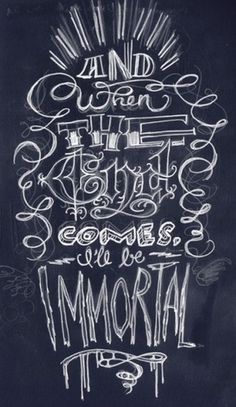 AND
When
THE
End
COMES.
I'll be
IMMORTAL